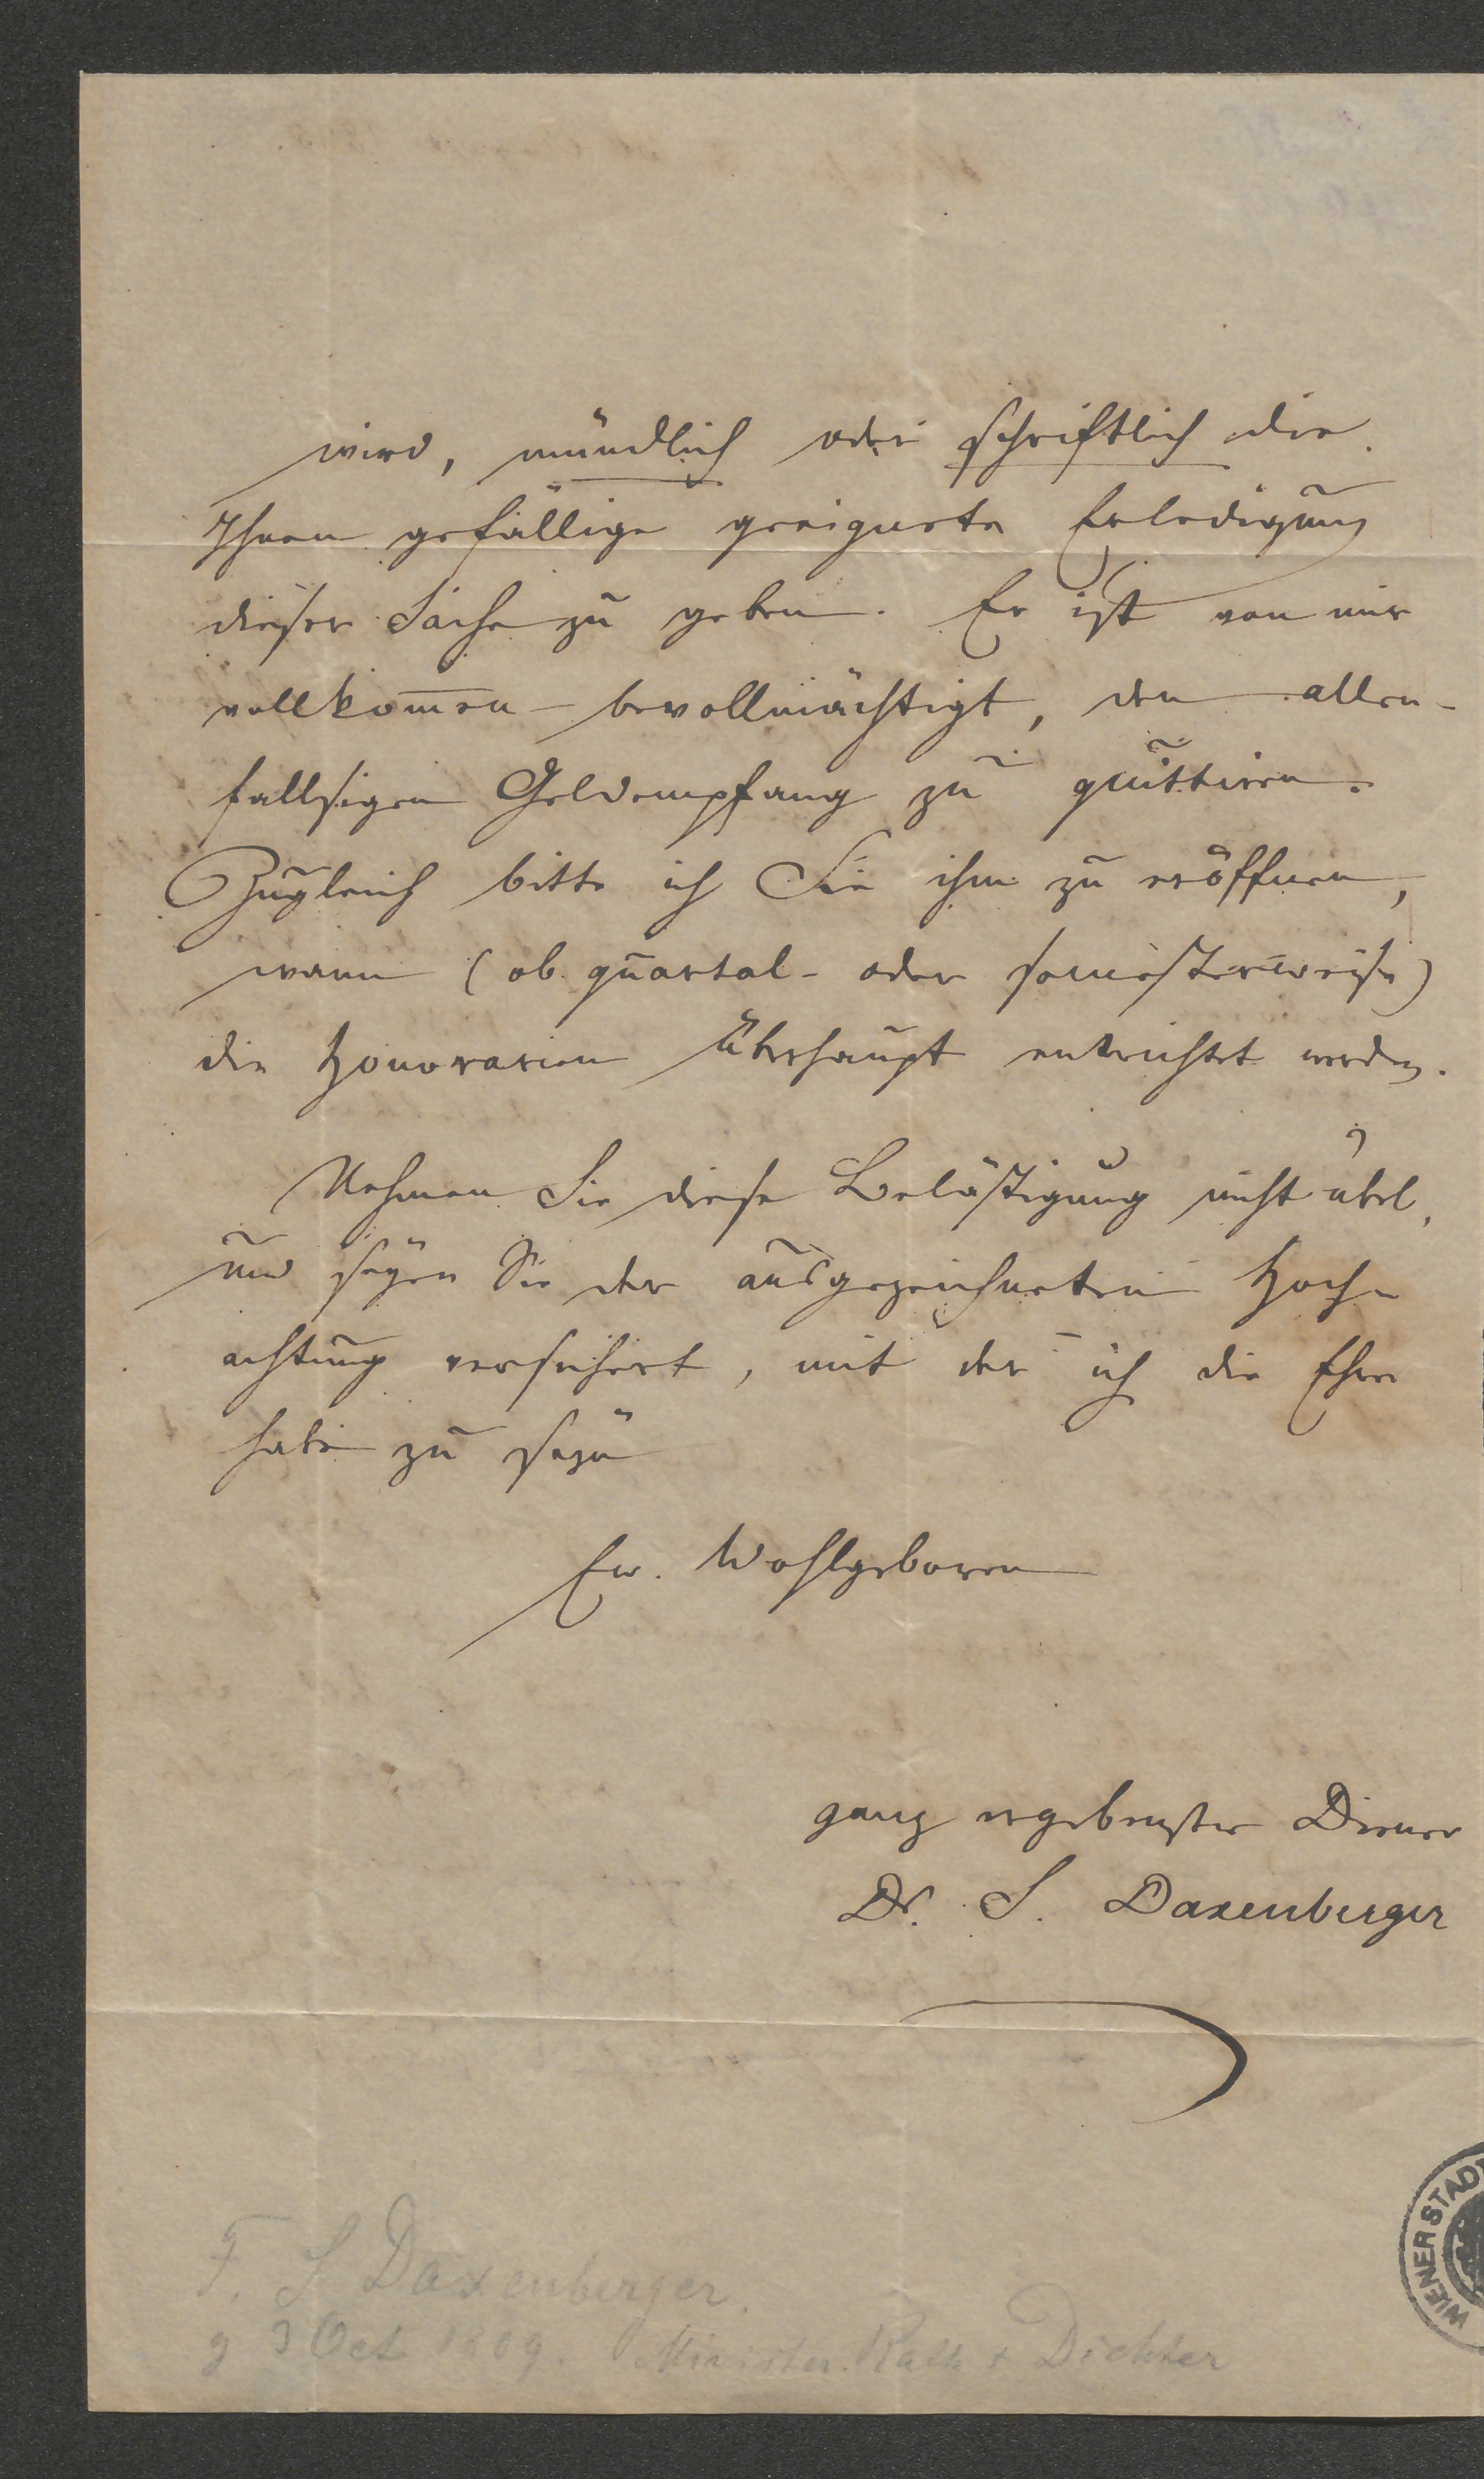 wird, mündlich oder schriftlich die
Ihnen gefällige geeignete Erledigung
dieser Sache zu geben. Er ist von mir
vollkom̅en bevollmächtigt, den allen-
fallsigen Geldempfang zu quittiren.
Zugleich bitte ich Sie ihm zu eröffnen,
wann (ob quartal- oder semesterweise)
die Honorarien überhaupt entrichtet werden.
Nehmen Sie diese Belästigung nicht übel,
und seyen Sie der ausgezeichneten Hoch-
achtung versichert, mit der ich die Ehre
habe zu seyn
Ew. Wohlgeboren
ganz ergebenster Diener
Dr. S. Daxenberger
F. S Daxenberger
g 3 Oct 1809. Minister. Rath + Dichter
WIENER STAD